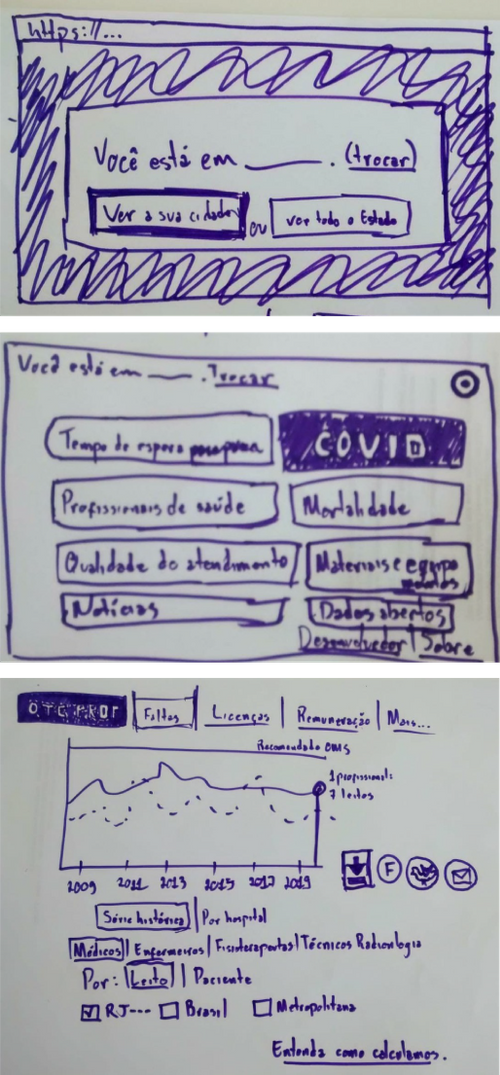 https://...
Você está em ______ . (trocar)
Ver a sua cidade ou ver todo o Estado
Você está em ____ . Trocar
Tempo de espera COVID
Profissionais de saúde Mortalidade
Qualidade do atendimento Materiais e equipa
mentos
Notícias Dados abertos
Desenvolvedor | Sobre
Faltas | Licenças | Remuneração | Mais...
Recomendado OMS
1 profissional:
7 leitos
2009 2011 2013 2015 2017 2019
F
Série histórica | Por hospital
Médicos | Enfermeiros | Fisioterapeutas | Técnicos Radiologia
Por: Leito | Paciente
RJ--- Brasil Metropolitana
Entenda como calculamos.